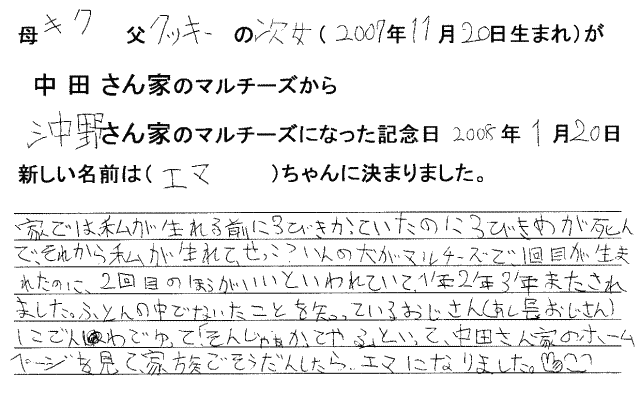 母キク 父クッキー の次女(2007年11月20日生まれ)が
中田さん家のマルチーズから
沖野さん家のマルチーズになった記念日 2008年1月20日
新しい名前は(エマ)ちゃんに決まりました。
家では私が生れる前に3びきかっていたのに3びきめが死ん
で、それから私が生れて、せっこういんの犬がマルチーズで1回目が生ま
れたのに、2回目のほうがいいといわれていて、1年2年3年またされ
ました。ふとんの中でないたことを知っているおじさん(あし長おじさん)
にでんわでゆって「そんじゃぁかってやる」といって、中田さん家のホーム
ページを見て、家族でそうだんしたら、エマになりました。